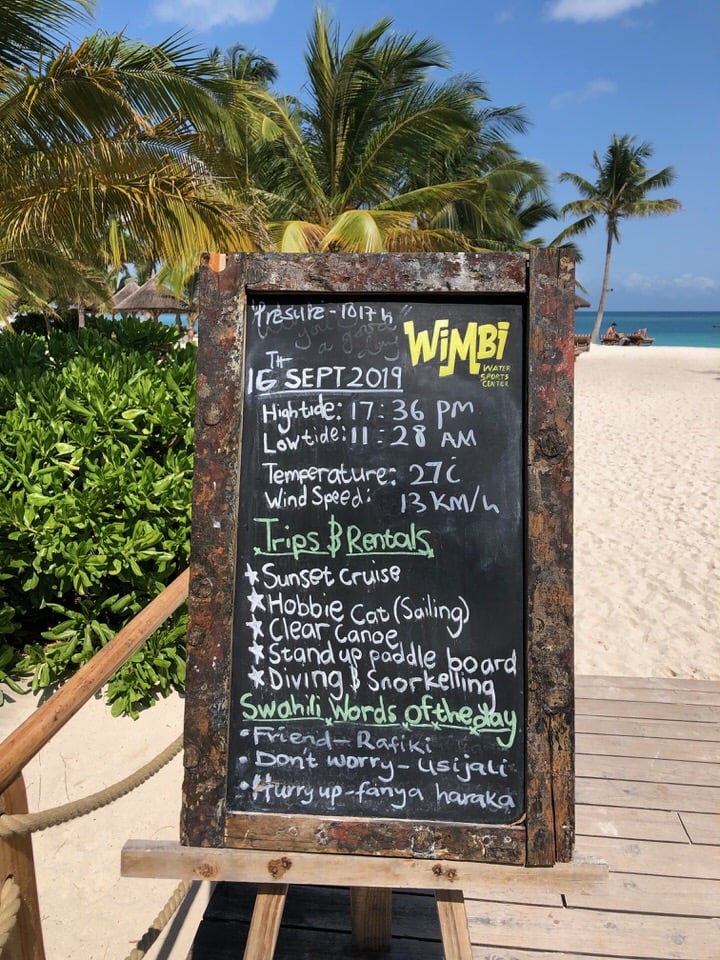 Presure - 1017 h
WiMBi
WATER
SPORTS
CENTER
TH
16 SEPT 2019
Hightide: 17:36 PM
Lowtide: 11:28 AM
Temperature: 27c
Wind Speed: 13 KM/h
Trips & Rentals
★ Sunset cruise
★ Hobbie Cat (Sailing)
★ Clear Canoe
★ Stand up paddle board
★ Diving & Snorkelling
Swahili Words of the day
• Friend - Rafiki
• Don't worry - usijali
• Hurry up - fanya haraka